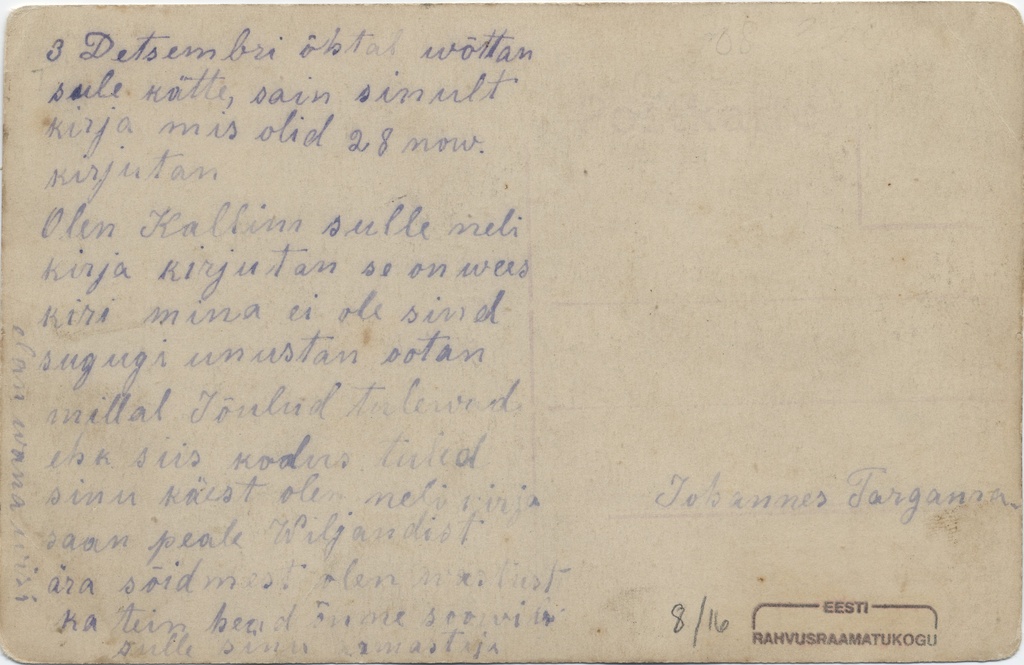 3 Detsembri õhtal wõttan
sule kätte, sain sinult
kirja mis olid 28 now.
kirjutan
Olen Kallim sulle neli
kirja kirjutan se on wees
kiri mina ei ole sind
sugugi unustan ootan
millal Jõulud tulewad
ehk siis kodus tuled
sinu käest olen neli kirja
saan peale Wiljandist
ära sõidmest olen wastust
ka tein head õnne soowin
sulle sinu armastaja
elan wana wisi
Johannes Targama
8/16
EESTI
RAHVUSRAAMATUKOGU